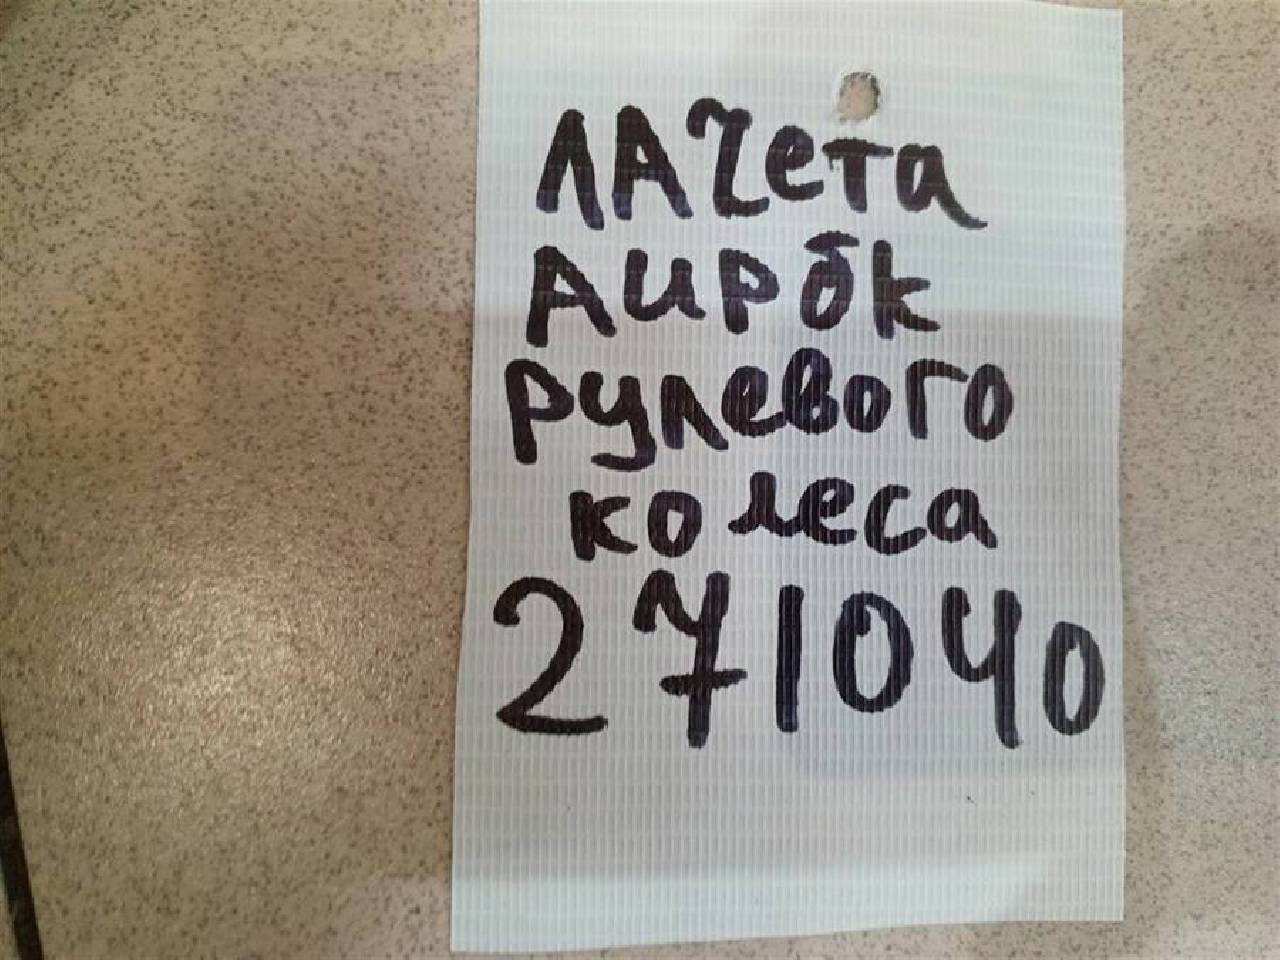 ЛАЧета
Аирбк
рулевого
колеса
271040